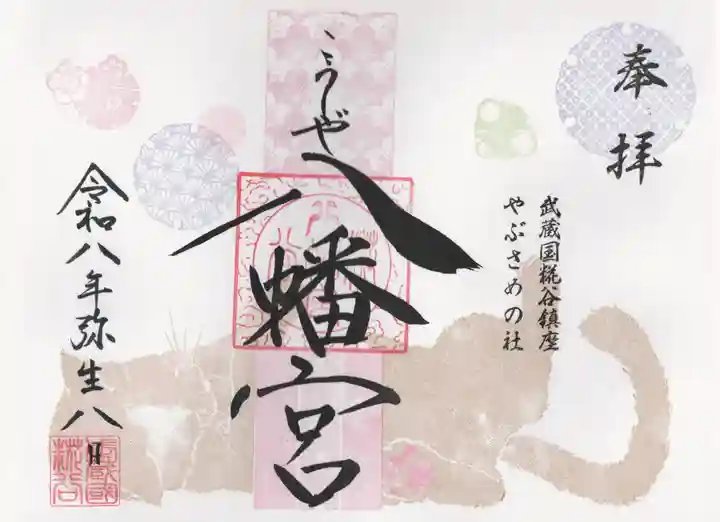 奉拝
武蔵国糀谷鎮座
やぶさめの社
こうじや
八幡宮
令和八年弥生八日
武蔵国
糀谷